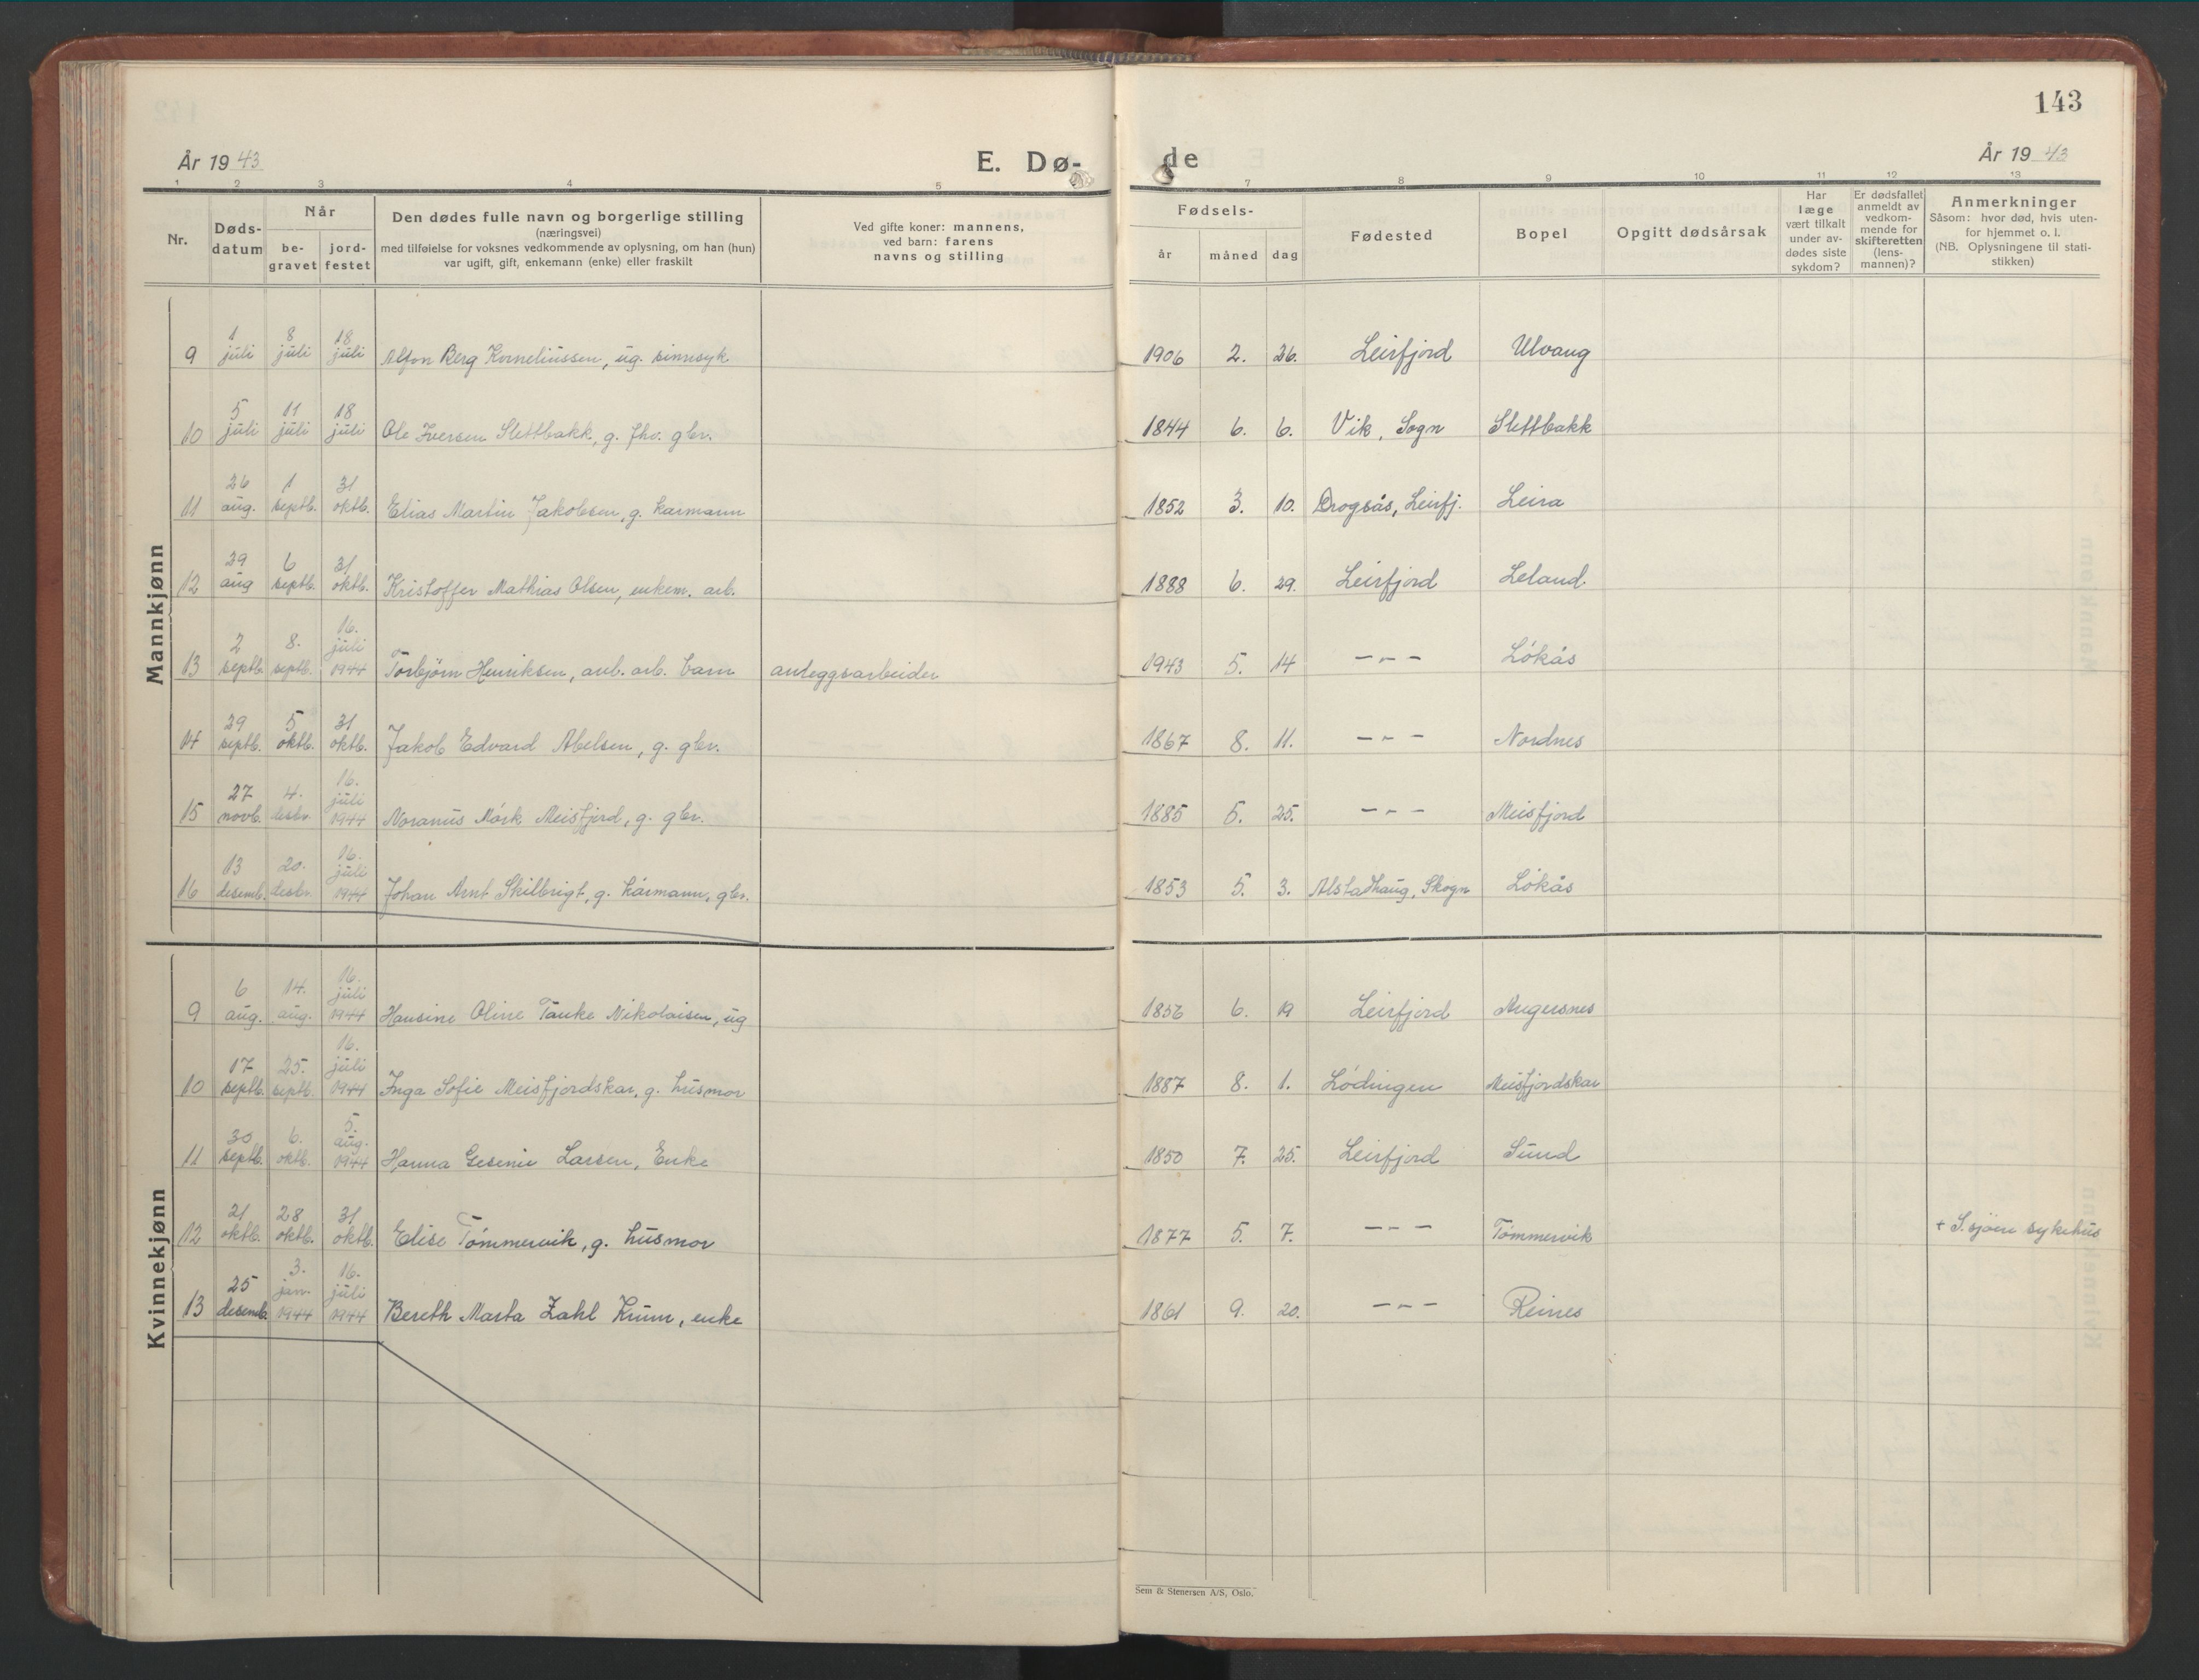 143
År 19 43
E. Dø-
de
År 19 43
1 2 3 4 5 7 8 9 10 11 12 13
Nr.
Døds-
datum
Når
be-
gravet
jord-
festet
Den dødes fulle navn og borgerlige stilling
(næringsvei)
med tilføielse for voksnes vedkommende av oplysning, om han (hun)
var ugift, gift, enkemann (enke) eller fraskilt
Ved gifte koner: mannens,
ved barn: farens
navns og stilling
Fødsels-
år måned dag
Fødested
Bopel
Opgitt dødsårsak
Har
læge
vært tilkalt
under av-
dødes siste
sykdom?
Er dødsfallet
anmeldt av
vedkom-
mende for
skifteretten
(lens-
mannen)?
Anmerkninger
Såsom: hvor død, hvis uten-
for hjemmet o. l.
(NB. Oplysningene til stati-
stikken)
Mannkjønn
9 1 juli 8 juli 18 juli Alfon Berg Korneliussen, ug. sinnsyk 1906 2. 26. Leirfjord Ulvang
10 5 juli 11 juli 18 juli Ole Iversen Slettbakk, g. fhv. gbr. 1844 6. 6. Vik, Sogn Slettbakk
11 26 aug. 1 septb. 31 oktb. Elias Martin Jakobsen, g. kårmann 1852 3. 10. Drogsås, Leirfj. Leira
12 29 aug 6 septb. 31 oktb. Kristoffer Mathias Olsen, enkem. arb. 1888 6. 29. Leirfjord Leland.
13 2 septb. 8. septb. 16. juli 1944 Torbjørn Henriksen, anl. arb. barn anleggsarbeider 1943 5. 14 – " – Løkås
14 29 septb. 5 oktb. 31 oktb. Jakob Edvard Abelsen, g. gbr. 1867 8. 11. – " – Nordnes
15 27 novb. 4. desbr. 16. juli 1944 Noranus Mørk Meisfjord, g. gbr. 1885 5. 25. – " – Meisfjord
16 13 desemb. 20. desbr. 16. juli 1944 Johan Arnt Skilbrigt, g. kårmann, gbr. 1853 5. 3. Alstadhaug, Skogn Løkås
Kvinnekjønn
9 6 aug. 14. aug. 16. juli 1944 Hansine Oline Tanke Nikolaisen, ug 1856 6. 19 Leirfjord Angersnes
10 17 septb. 25. septb. 16. juli 1944 Inga Sofie Meisfjordskar, g. husmor 1887 8. 1. Lødingen Meisfjordskar
11 30 septb. 6. oktb. 5. aug. 1944 Hanna Gesenie Larsen, Enke 1850 7. 25. Leirfjord Sund
12 21 oktb. 28 oktb. 31 oktb. Elise Tømmervik, g. husmor 1877 5. 7. – " – Tømmervik + S.sjøen sykehus
13 25 desemb. 3. jan. 1944 16. juli 1944 Bereth Marta Zahl Krum, enke 1861 9. 20. – " – Reines
Sem & Stenersen A/S, Oslo.